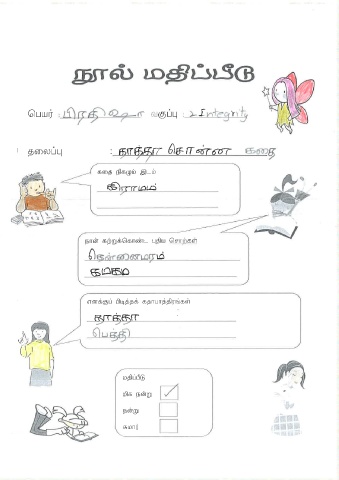 நூல் மதிப்பீடு
பெயர் பிரதிஷா வகுப்பு 2 Integrity
தலைப்பு : தாத்தா சொன்ன கதை
கதை நிகழும் இடம்
கிராமம்
நான் கற்றுக்கொண்ட புதிய சொற்கள்
தென்னைமரம்
கம்கம
எனக்குப் பிடித்தக் கதாபாத்திரங்கள்
தாத்தா
பெத்தி
மதிப்பீடு
மிக நன்று
நன்று
சுமார்